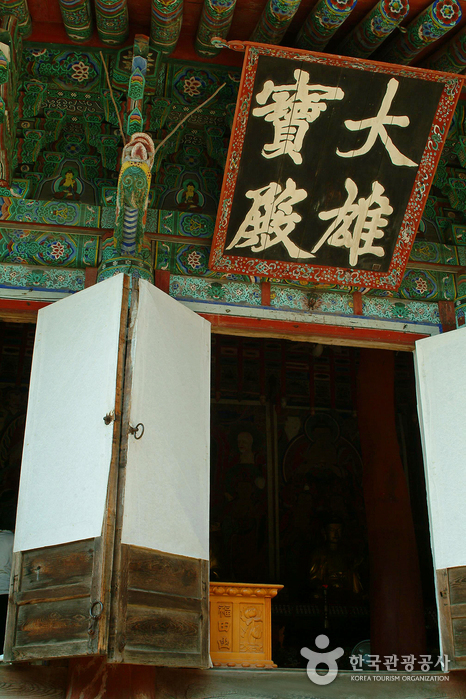 大雄
寶殿
福田
한국관광공사
KOREA TOURISM ORGANIZATION